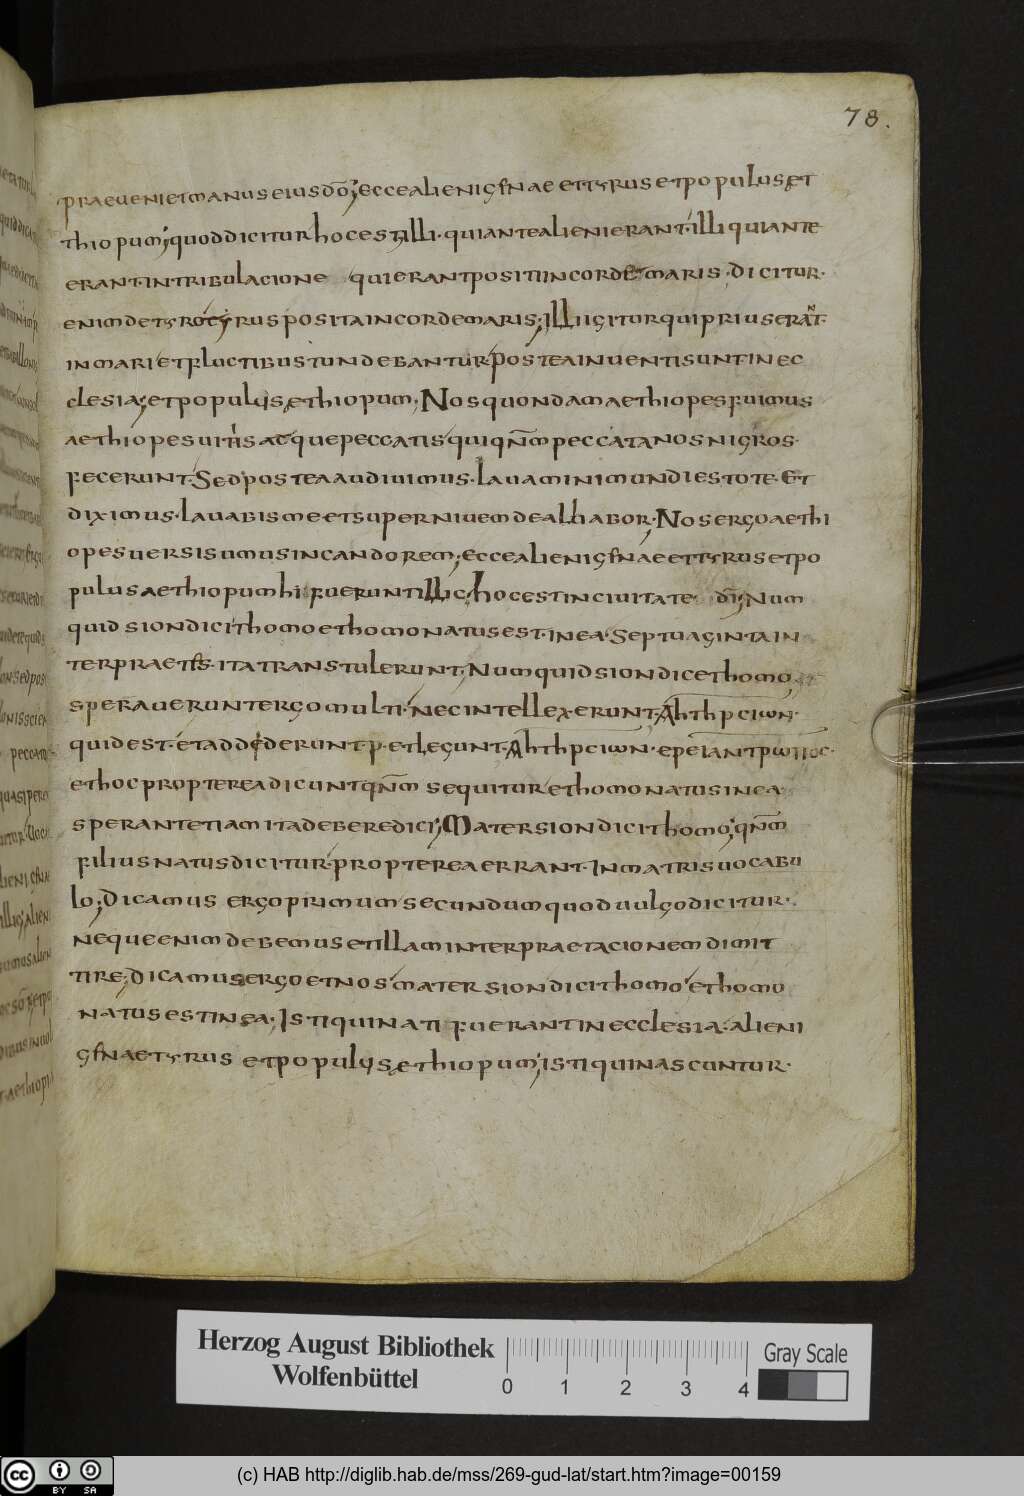 78.
praeueniet manus eius dō; ecce alienigēnae et tyrus et populus ęt
thiopum; quod dicitur hoc est illi. quia ante alieni erant. illi qui ante
erant in tribulacione qui erant positi in corde maris. dicitur.
enim de tyro tyrus posita in corde maris; Illi igitur qui prius erāt.
in mari et fluctibus tundebantur postea inuenti sunt in ec
clesia; et populus ęthiopum; Nos quondam aethiopes fuimus
aethiopes uitiis acque peccatis qui qn̄m peccata nos nigros.
fecerunt. Sed postea audiuimus. lauamini mundi estote. Et
diximus. lauabis me et super niuem dealbabor. Nos ergo aethi
opes uersi sumus in candorem; ecce alienigēnae et tyrus et po
pulus aethiopum hi fuerunt illic; hoc est in ciuitate dn̄i; Num
quid sion dicit homo et homo natus est. in ea. Septuaginta in
terpraetes. ita transtulerunt; Numquid sion dicet homo
sperauerunt ergo multi. nec intellexerunt.
quid est. et addederunt. p. et legunt.
et hoc propterea dicunt qn̄m sequitur et homo natus in ea
sperant etiam ita debere dici; Mater sion dicit homo; qn̄m
filius natus dicitur. propterea errant. In matris uocabu
lo; Dicamus ergo primum secundum quod uulgo dicitur.
neque enim debemus et illam interpraetacionem dimit
tire; Dicamus ergo et nos mater sion dicit homo et homo
natus est in ea. Isti qui nati fuerant in ecclesia. alieni
gēnae tyrus et populus ęthiopum; isti qui nascuntur.
Herzog August Bibliothek
Wolfenbüttel
0 1 2 3 4
Gray Scale
cc BY SA
(c) HAB http://diglib.hab.de/mss/269-gud-lat/start.htm?image=00159